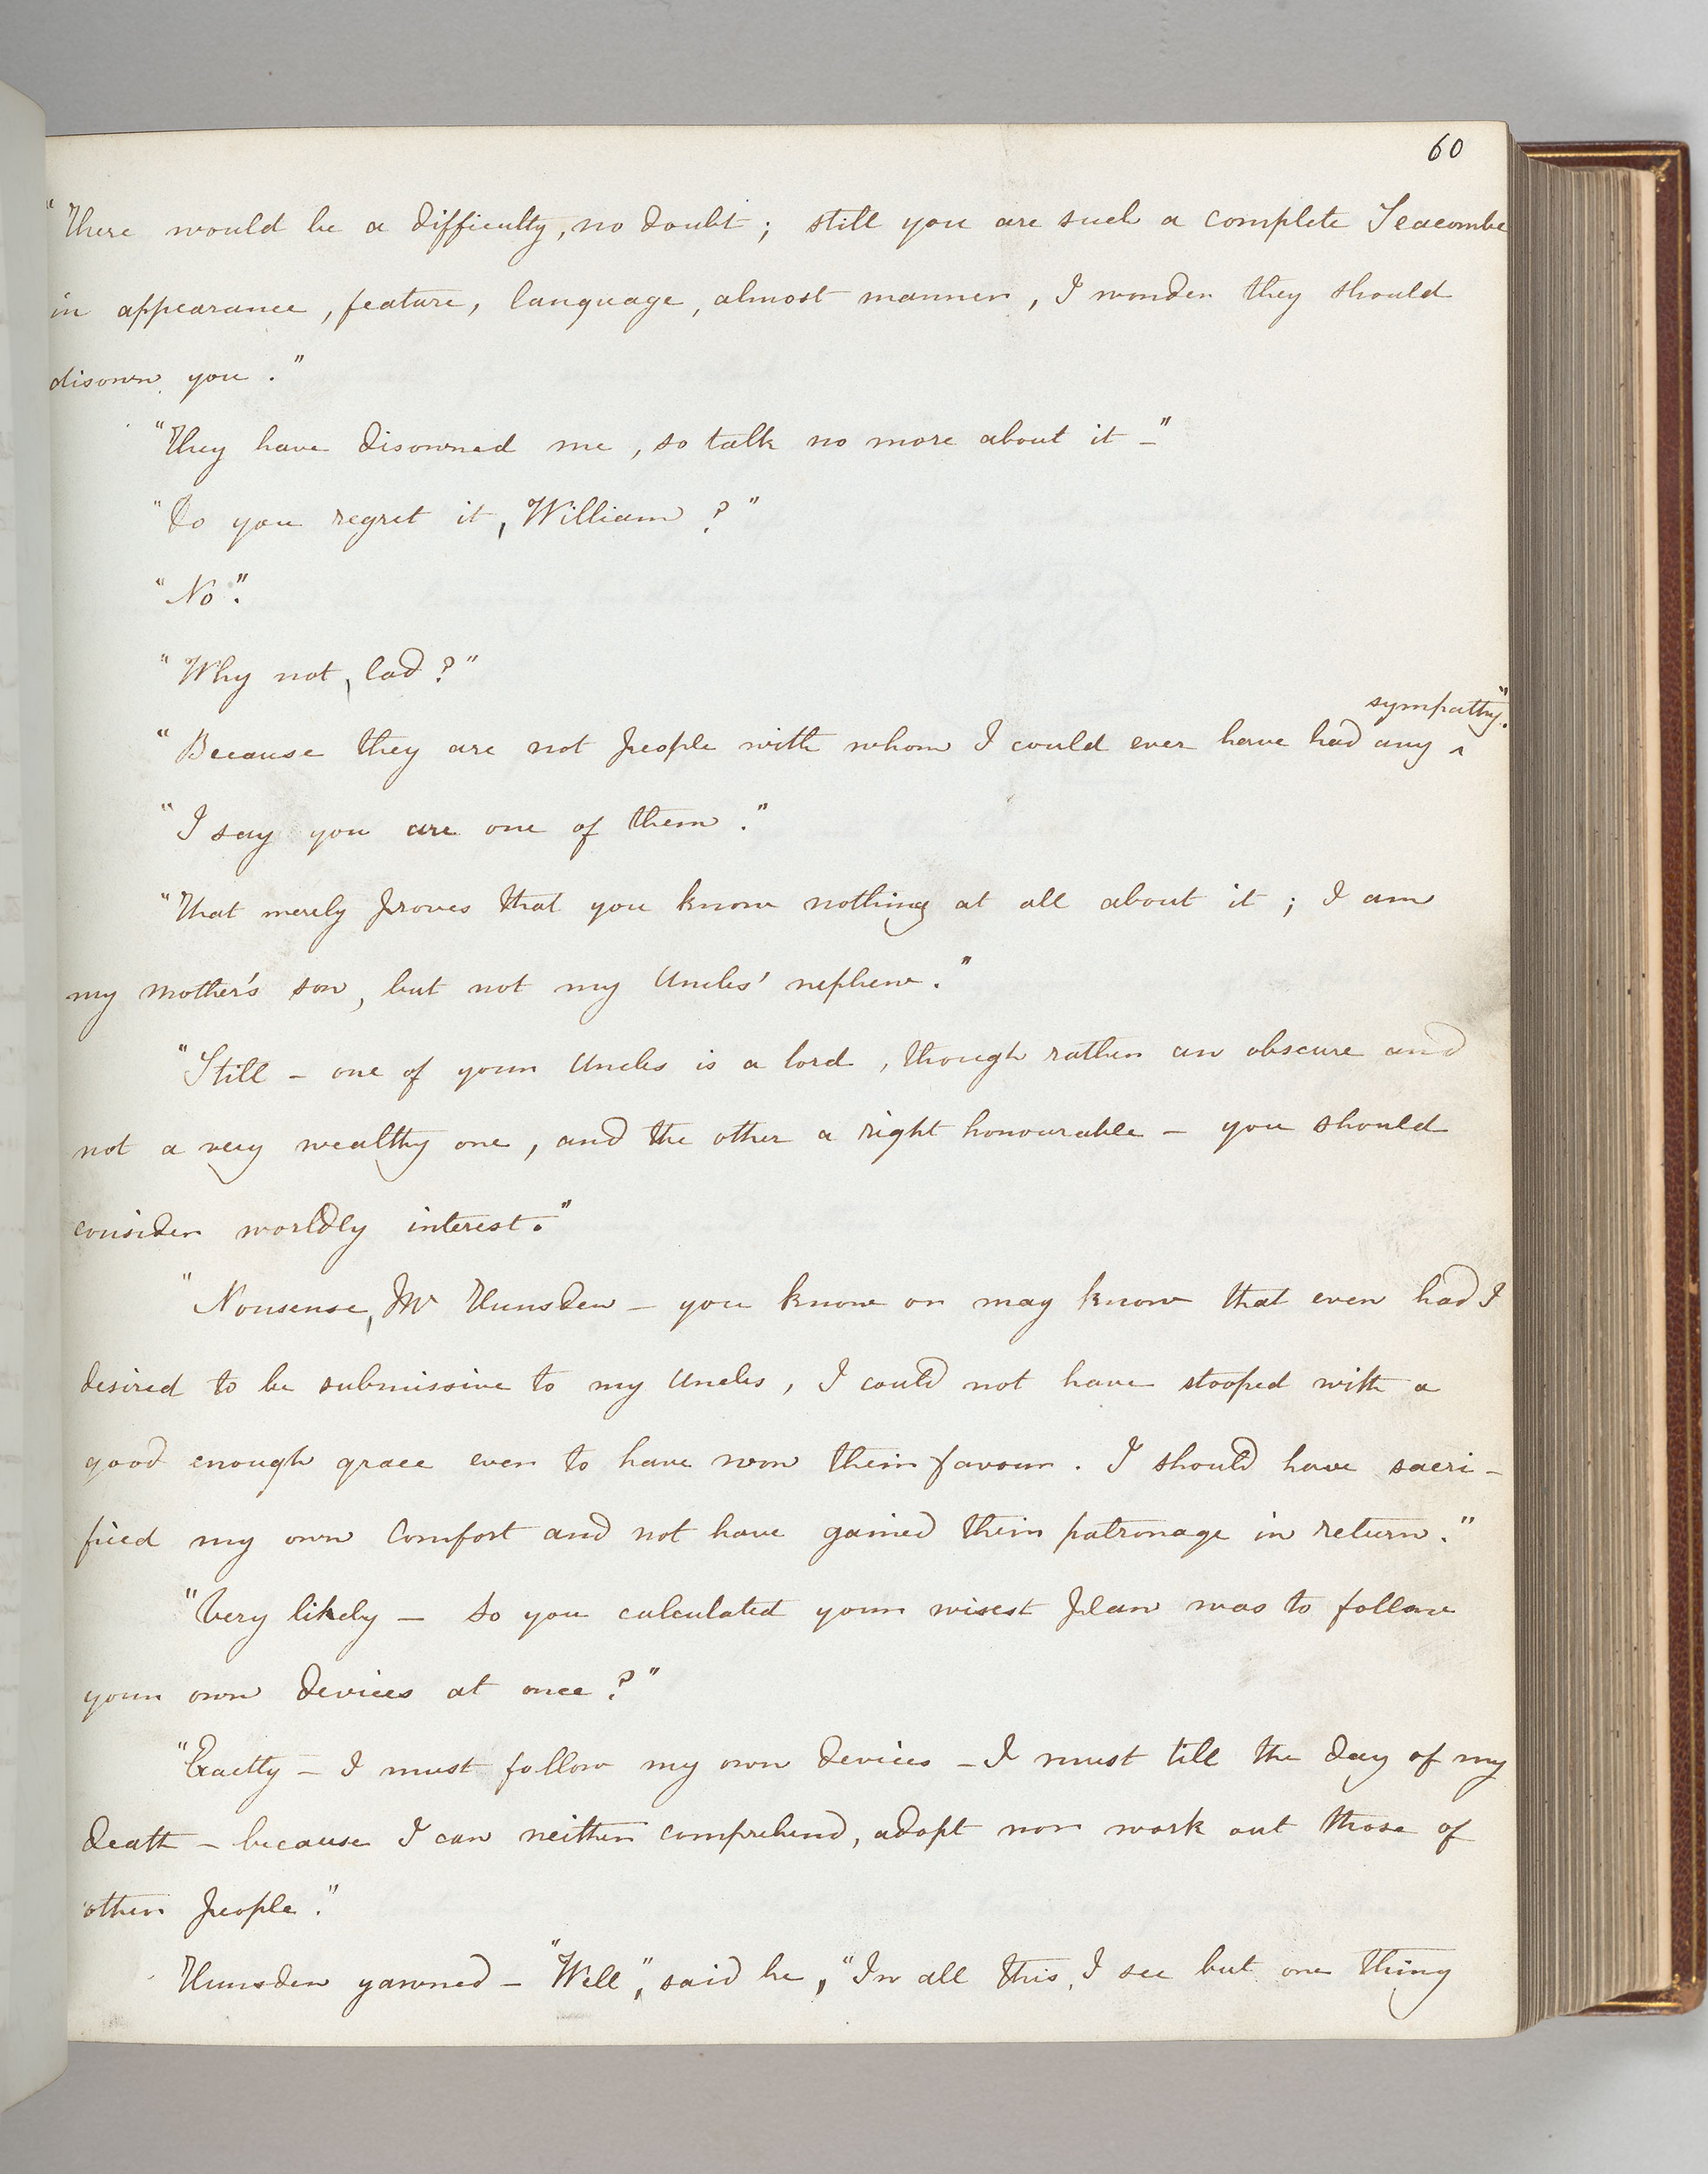 60
"There would be a difficulty, no doubt; still you are such a complete Seacombe
in appearance, feature, language, almost manner, I wonder they should
disown you."
"They have disowned me, so talk no more about it –"
"Do you regret it, William?"
"No."
"Why not, lad?"
sympathy."
"Because they are not people with whom I could ever have had any ^
"I say you are one of them."
"That merely proves that you know nothing at all about it; I am
my mother's son, but not my Uncles' nephew."
"Still – one of your Uncles is a lord, though rather an obscure and
not a very wealthy one, and the other a right honourable – you should
consider worldly interest."
"Nonsense, Mr Hunsden – you know or may know that even had I
desired to be submissive to my Uncles, I could not have stooped with a
good enough grace ever to have won their favour. I should have sacri-
ficed my own comfort and not have gained their patronage in return."
"Very likely – so you calculated your wisest plan was to follow
your own devices at once?"
"Exactly – I must follow my own devices – I must till the day of my
death – because I can neither comprehend, adopt nor work out those of
other people."
Hunsden yawned – "Well," said he, "In all this, I see but one thing